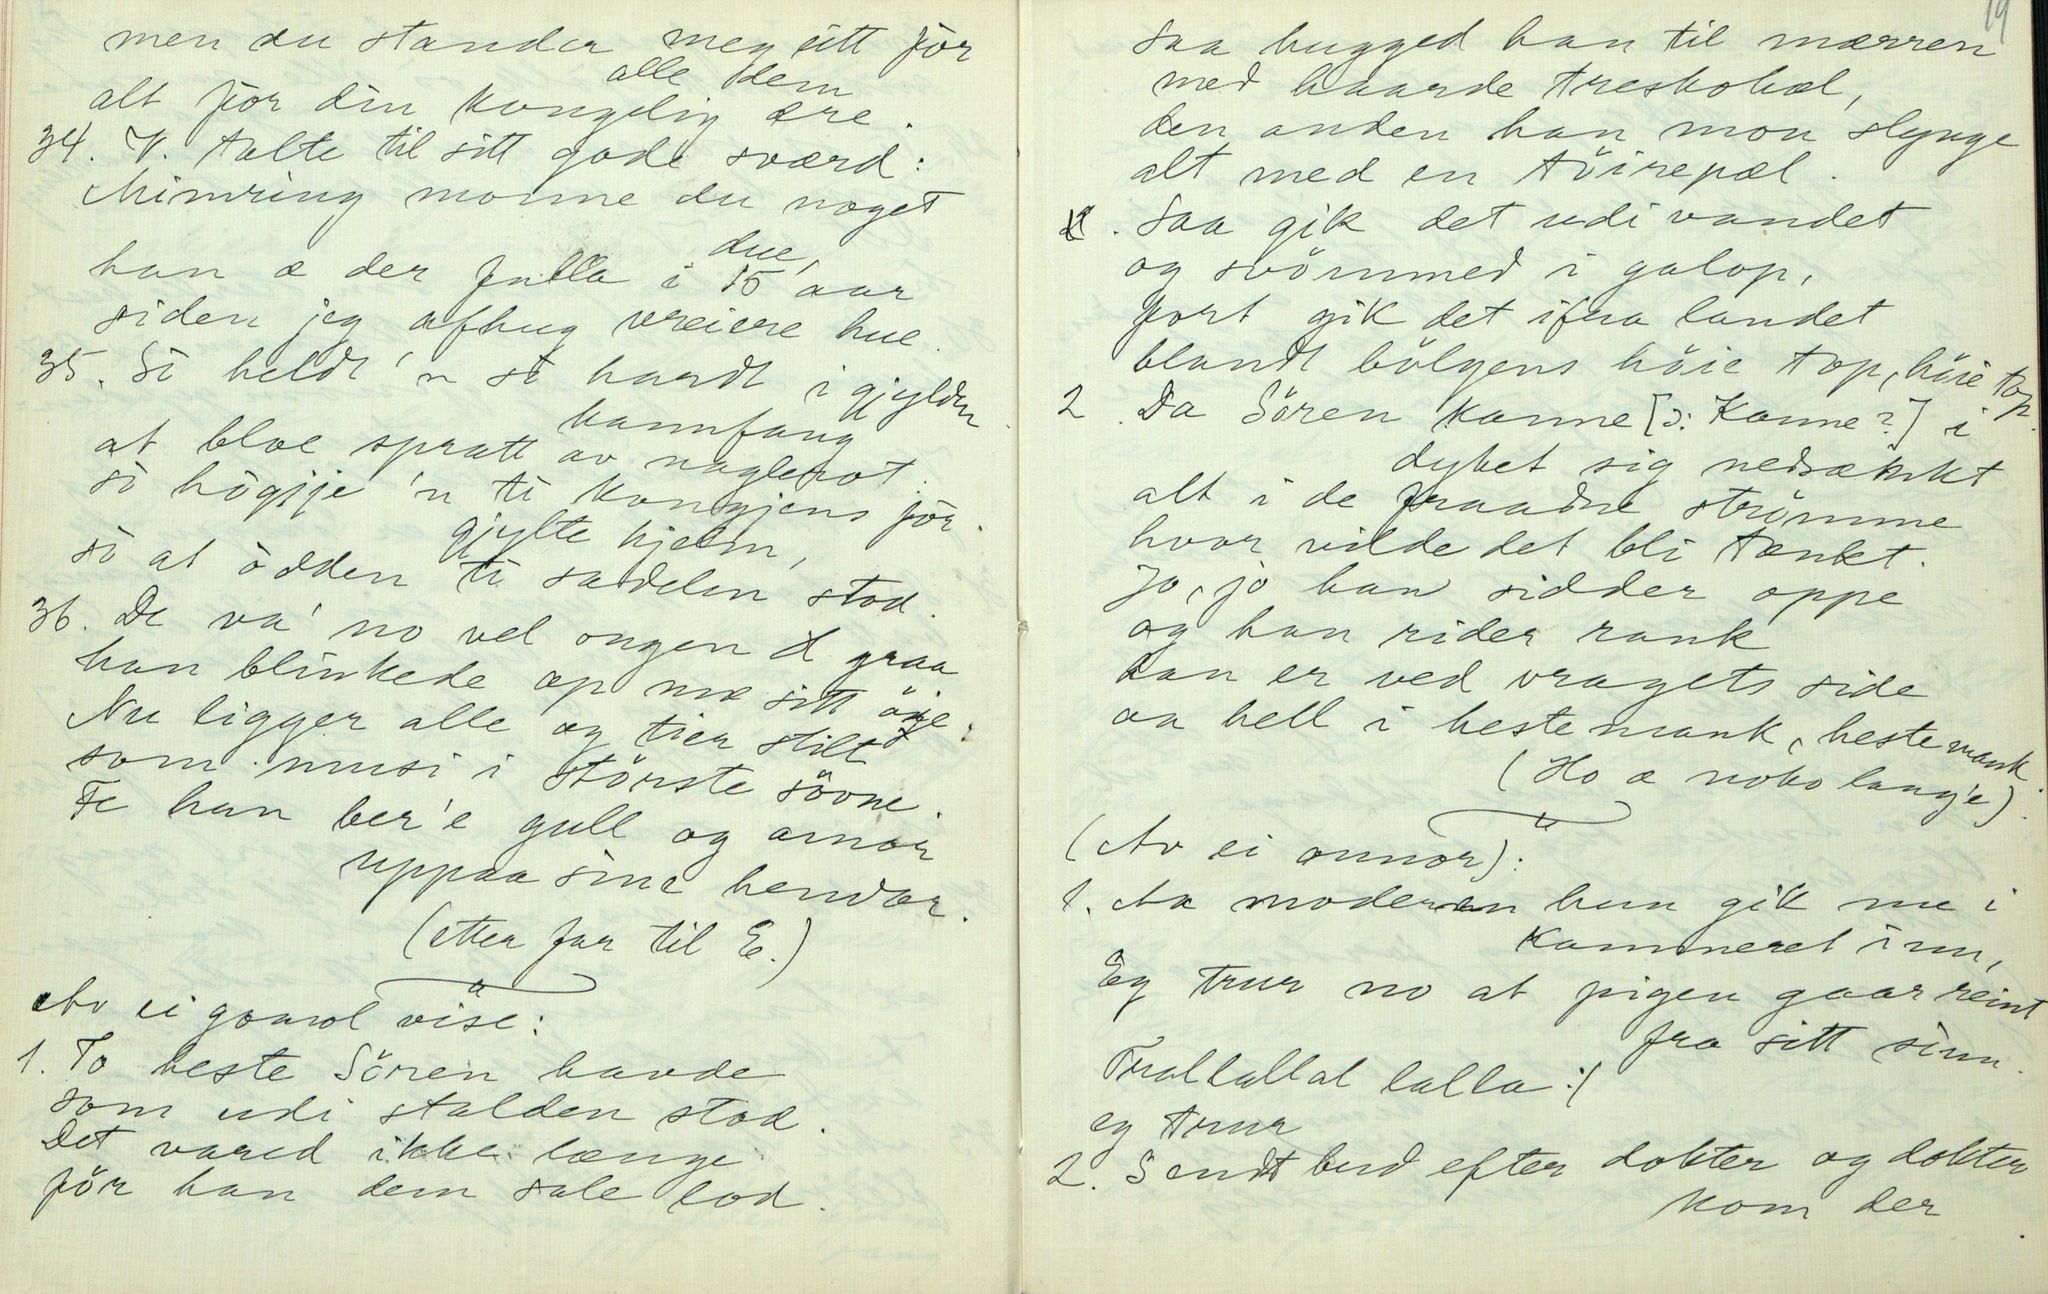 men du standa meg itt för
alle dem
alt for din kongelig ære.
34. V. talte til sitt gode sværd:
Mimring monne du noget
due,
han æ der fulla i 15 aar
siden jeg afhug vreiere hue.
35. Så heldt 'n så hardt i gjylden
hannfang
at bloe spratt av naglerot.
så högjje 'n ti kongjens för.
gjylte hjelm,
så at ödden ti sadelen stod.
36. De va' no vel ongen d graa
han blinkede op mæ sitt öje.
Nu ligger alle og tier stilt
som musi i störste sövne.
Fe han ber'e gull og armör
uppaa sine hendar.
(etter far til E.)
Av ei gamol vise:
1. To heste Sören havde
som udi stalden stod.
Det vared ikke længe
för han dem sale lod.
19
Saa hugged han til mærren
med haarde træskohæl,
den anden han mon slynge
alt med en töirepæl.
. Saa gik det udi vandet
og svömmed i galop,
fort gik det ifra landet
blandt bölgens höie top, höie top.
2. Da Sören kanne [ɔ: Kanne?] i
dybet sig nedsænkt
alt i de fraadne strömme
hvor vilde det bli tænkt.
Jo, jo han sidder oppe
og han rider rank
han er ved vragets side
aa hell i hestemank, hestemank.
(Ho æ noko lang'e).
(Av ei annor):
1. Aa moderen hun gik me i
kammeret inn,
Eg trur no at pigen gaar reint
fra sitt sinn.
Trallallal lalla :/
eg trur
2. Sendt bud efter dokter og dokter
kom der